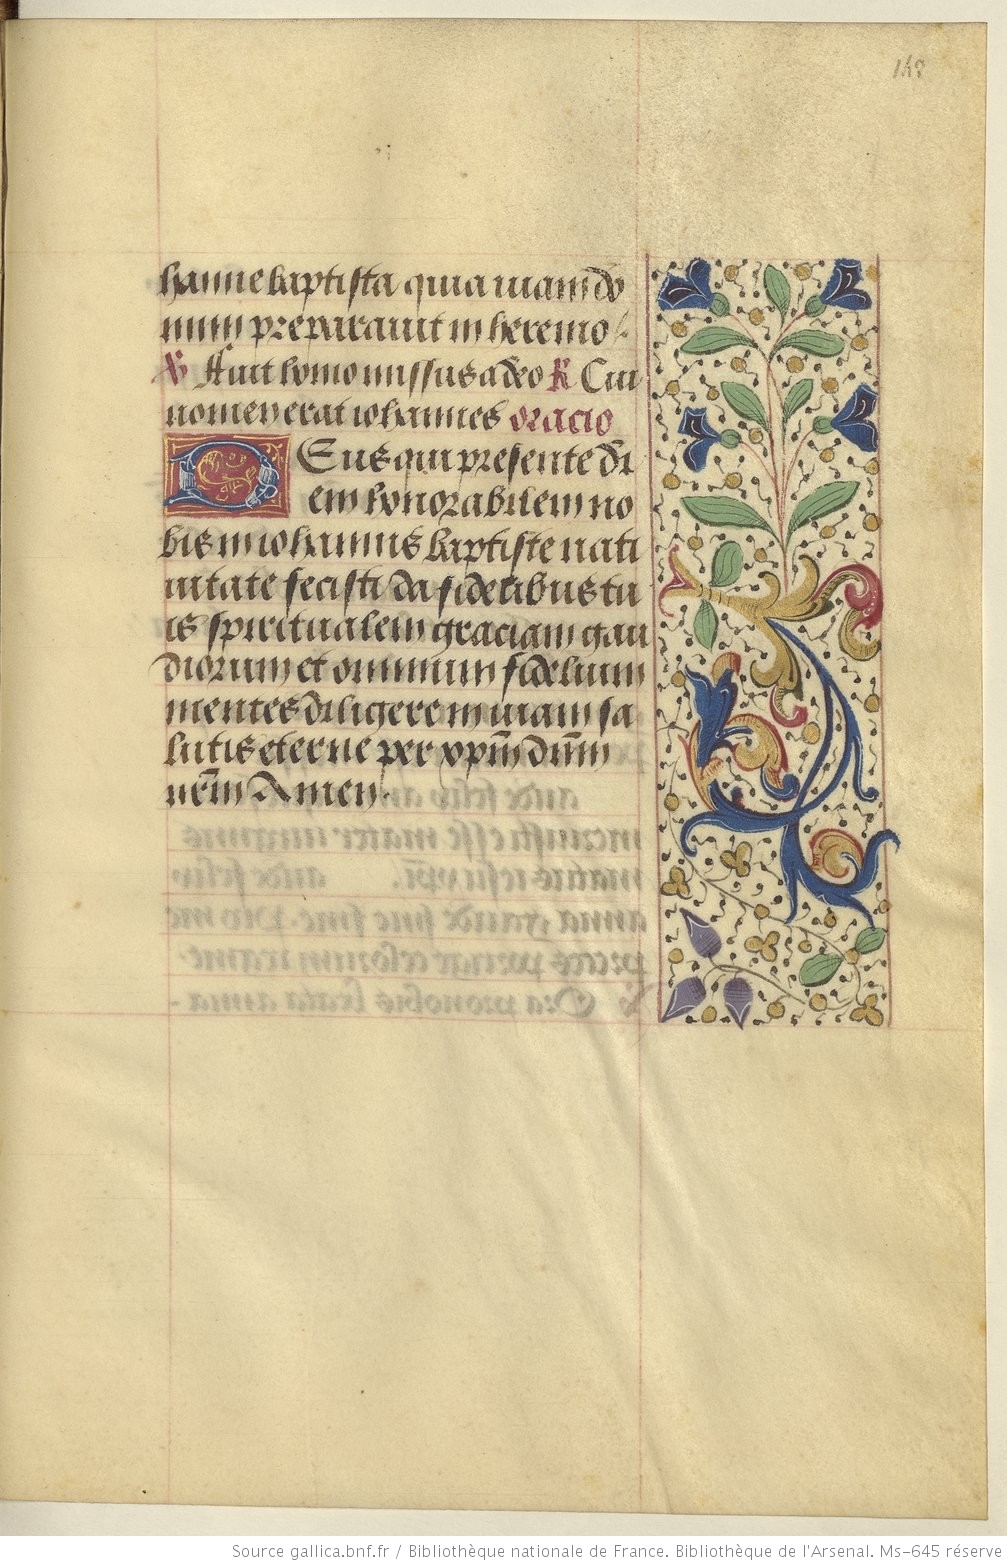 148
hanne baptista quia uiam do
mini preparauit in heremo
℣ Fuit homo missus a deo ℟ Cui
nomen erat iohannes oracio
Deus qui presente di
em honorabilem no
bis in iohannis baptiste nati
uitate fecisti da fidelibus tu
is spiritualem graciam gau
diorum et omnium fidelium
mentes dirigere in uiam sa
lutis eterne per xp̄m dn̄m
nr̄m Amen
Source gallica.bnf.fr / Bibliothèque nationale de France. Bibliothèque de l'Arsenal. Ms-645 réserve